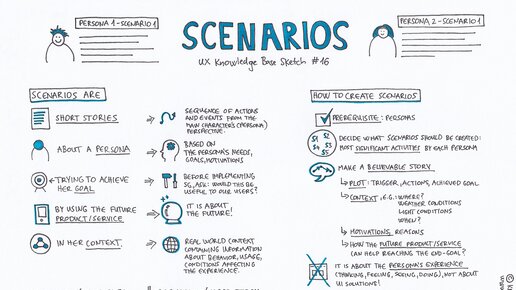 PERSONA 1 - SCENARIO 1
SCENARIOS
UX Knowledge Base Sketch #16
PERSONA 2 - SCENARIO 1
SCENARIOS ARE
SHORT STORIES
SEQUENCE OF ACTIONS
AND EVENTS FROM THE
MAIN CHARACTER'S (PERSONA)
PERSPECTIVE.
ABOUT A PERSONA
BASED ON
THE PERSONA'S NEEDS,
GOALS, MOTIVATIONS
TRYING TO ACHIEVE
HER GOAL
BEFORE IMPLEMENTING
SG, ASK: WOULD THIS BE
USEFUL TO OUR USERS?
BY USING THE FUTURE
PRODUCT/SERVICE
IT IS ABOUT
THE FUTURE!
IN HER CONTEXT.
REAL WORLD CONTEXT
CONTAINING INFORMATION
ABOUT BEHAVIOR, USAGE,
CONDITIONS AFFECTING
THE EXPERIENCE.
HOW TO CREATE SCENARIOS
PREREQUISITE: PERSONAS
S1 S2
S3
S4 S5
DECIDE WHAT SCENARIOS SHOULD BE CREATED:
MOST SIGNIFICANT ACTIVITIES BY EACH PERSONA
MAKE A BELIEVABLE STORY
PLOT: TRIGGER, ACTIONS, ACHIEVED GOAL
CONTEXT, E.G.: WHERE?
WEATHER CONDITIONS
LIGHT CONDITIONS
WHEN?
MOTIVATIONS, REASONS
HOW THE FUTURE PRODUCT/SERVICE
CAN HELP REACHING THE END-GOAL?
IT IS ABOUT THE PERSONA'S EXPERIENCE
(THINKING, FEELING, SEEING, DOING), NOT ABOUT
UI SOLUTIONS!